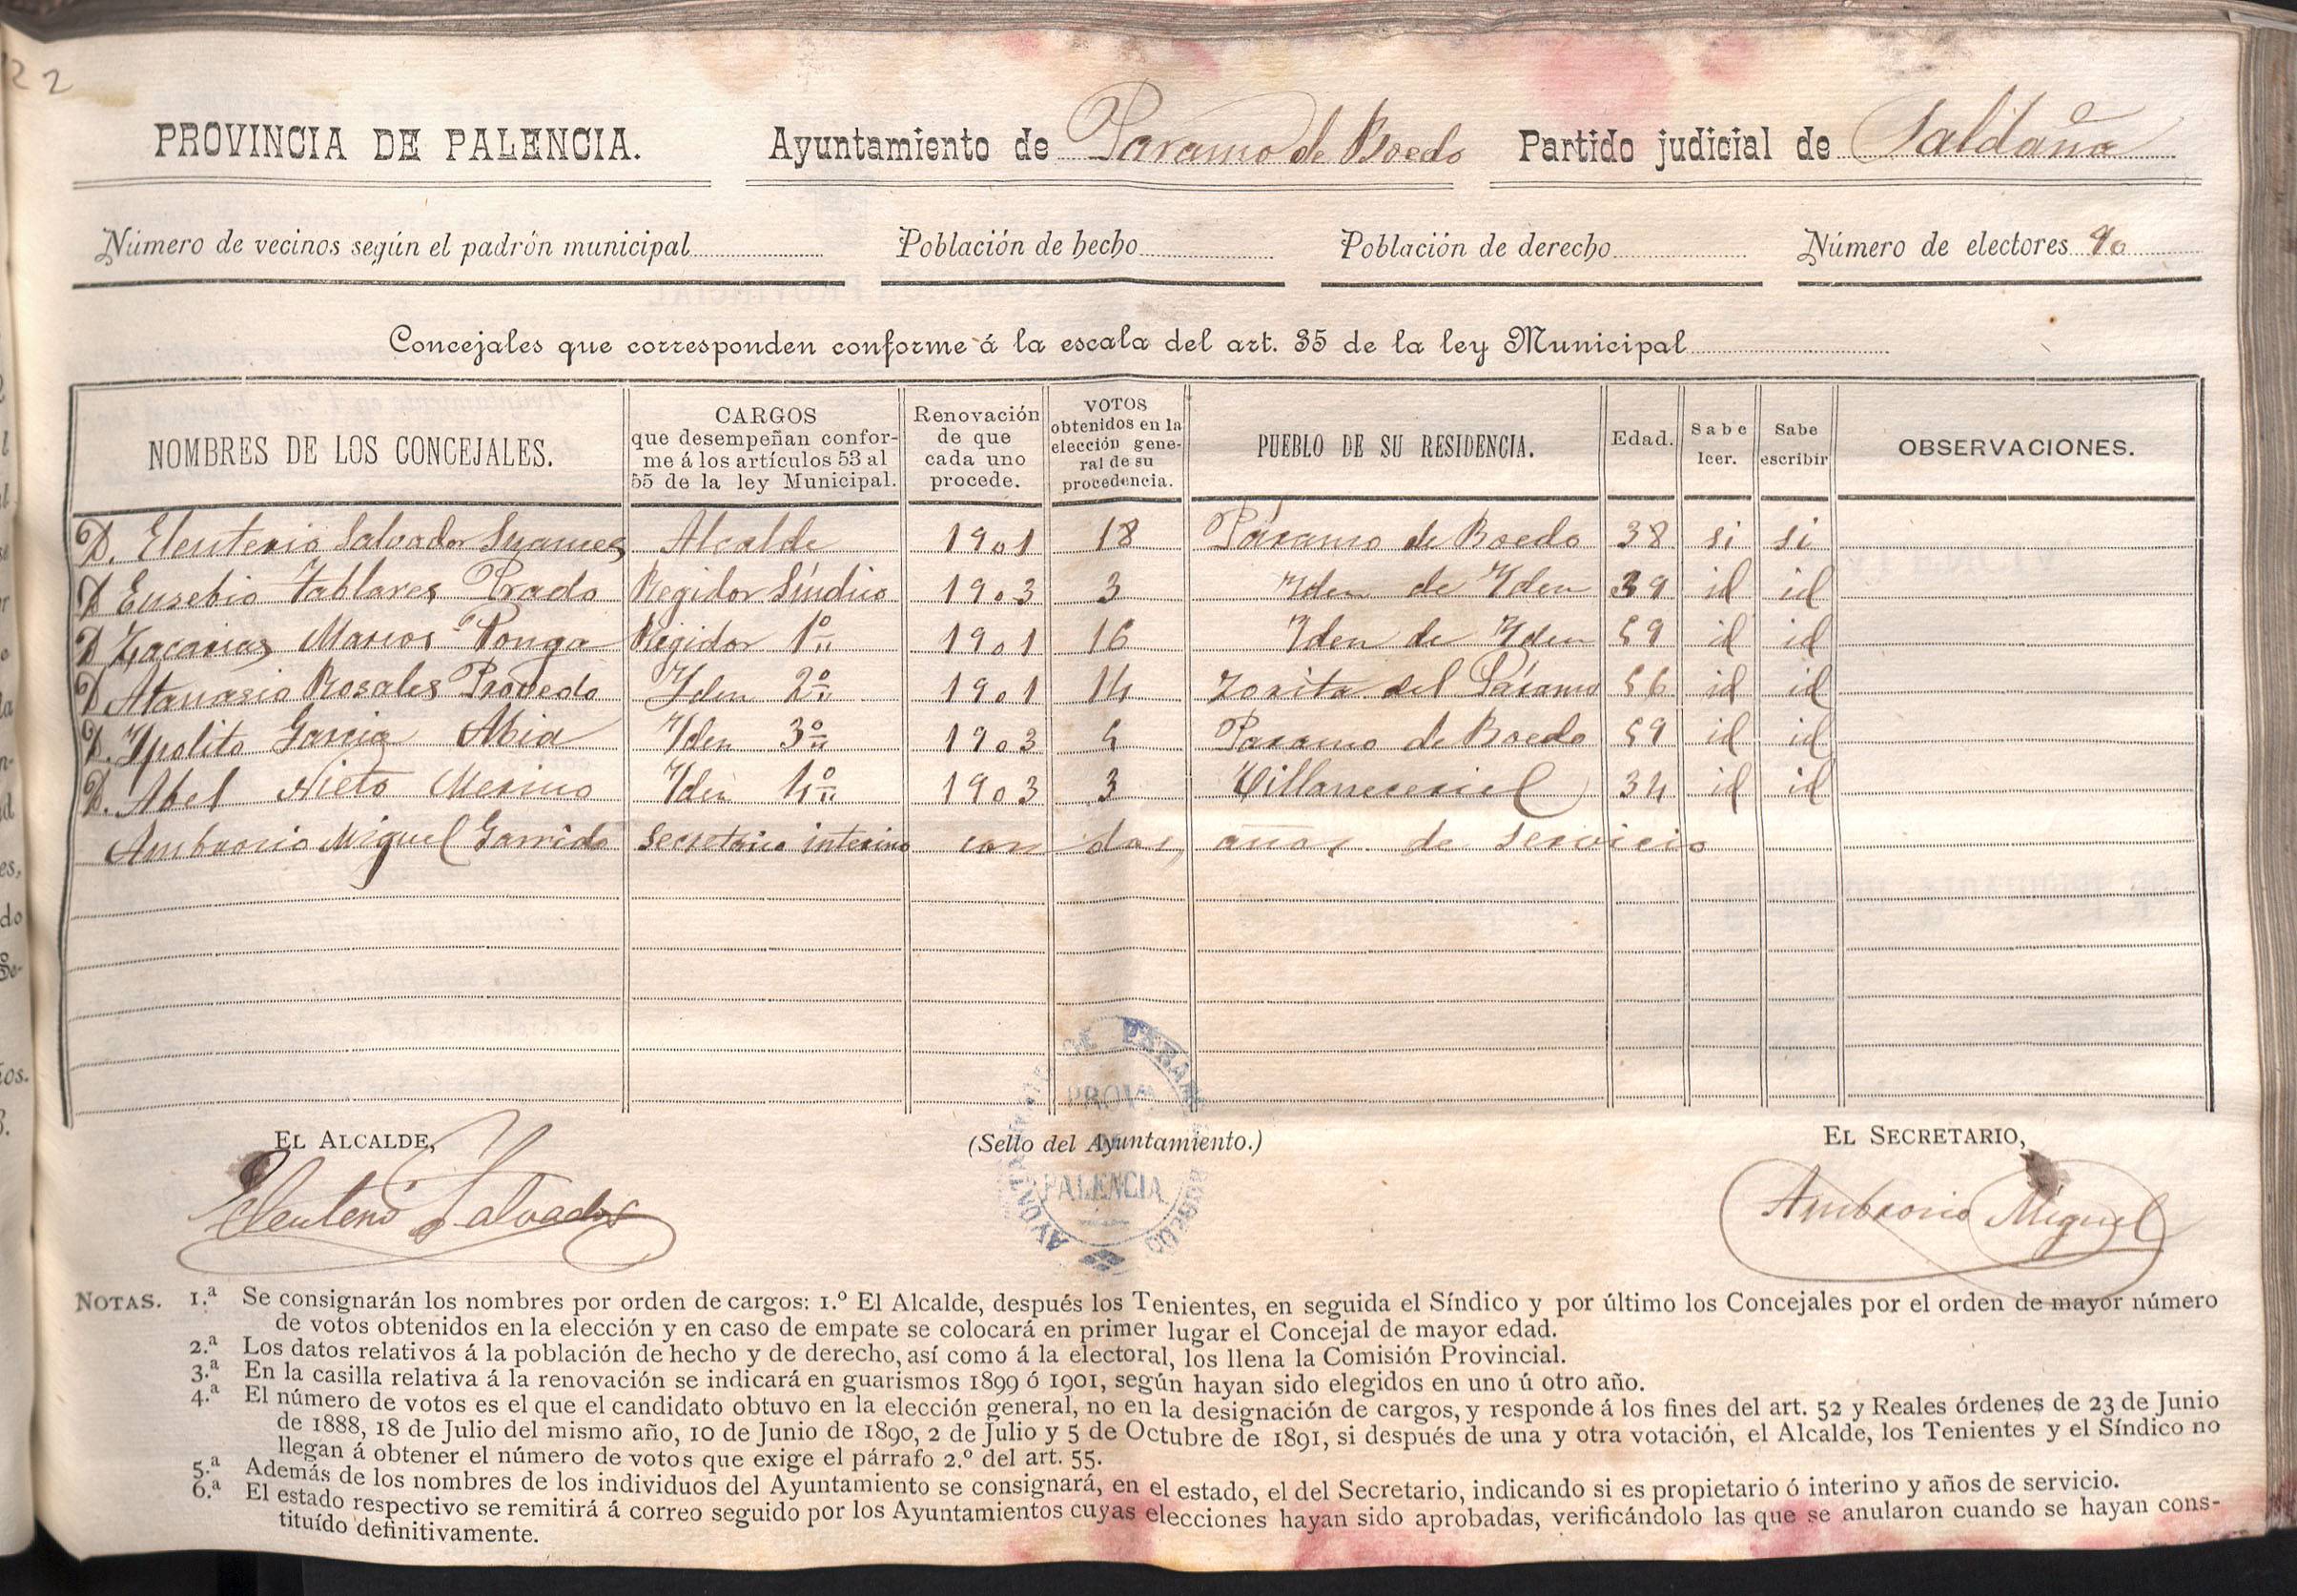 22
PROVINCIA DE PALENCIA. Ayuntamiento de Paramo de Boedo Partido judicial de Saldaña
Número de vecinos según el padrón municipal Población de hecho Población de derecho Número de electores 90
Concejales que corresponden conforme á la escala del art. 35 de la ley Municipal
NOMBRES DE LOS CONCEJALES. CARGOS que desempeñan conforme á los artículos 53 al 55 de la ley Municipal. Renovación de que cada uno procede. VOTOS obtenidos en la elección general de su procedencia. PUEBLO DE SU RESIDENCIA. Edad. Sabe leer. Sabe escribir OBSERVACIONES.
D. Eleuterio Salvador Suances Alcalde 1901 18 Páramo de Boedo 38 si si
D Eusebio Tablares Prado Regidor Síndico 1903 3 Yden de Yden 39 id id
D Zacarias Marcos Ponga Regidor 1º 1901 16 Yden de Yden 59 id id
D Atanasio Rosales Yden 2º 1901 14 Zorita del Páramo 56 id id
D. Ypolito Garcia Abia Yden 3º 1903 5 Paramo de Boedo 59 id id
D. Abel Nieto Merino Yden 4º 1903 3 Villaneceriel 34 id id
Ambrosio Miguel Garrido Secretario interino con dos años de servicio
EL ALCALDE, (Sello del Ayuntamiento.) EL SECRETARIO,
Eleuterio Salvador Ambrosio Miguel
PROVA
PALENCIA
NOTAS. 1.ª Se consignarán los nombres por orden de cargos: 1.º El Alcalde, después los Tenientes, en seguida el Síndico y por último los Concejales por el orden de mayor número
de votos obtenidos en la elección y en caso de empate se colocará en primer lugar el Concejal de mayor edad.
2.ª Los datos relativos á la población de hecho y de derecho, así como á la electoral, los llena la Comisión Provincial.
3.ª En la casilla relativa á la renovación se indicará en guarismos 1899 ó 1901, según hayan sido elegidos en uno ú otro año.
4.ª El número de votos es el que el candidato obtuvo en la elección general, no en la designación de cargos, y responde á los fines del art. 52 y Reales órdenes de 23 de Junio
de 1888, 18 de Julio del mismo año, 10 de Junio de 1890, 2 de Julio y 5 de Octubre de 1891, si después de una y otra votación, el Alcalde, los Tenientes y el Síndico no
llegan á obtener el número de votos que exige el párrafo 2.º del art. 55.
5.ª Además de los nombres de los individuos del Ayuntamiento se consignará, en el estado, el del Secretario, indicando si es propietario ó interino y años de servicio.
6.ª El estado respectivo se remitirá á correo seguido por los Ayuntamientos cuyas elecciones hayan sido aprobadas, verificándolo las que se anularon cuando se hayan cons-
tituído definitivamente.